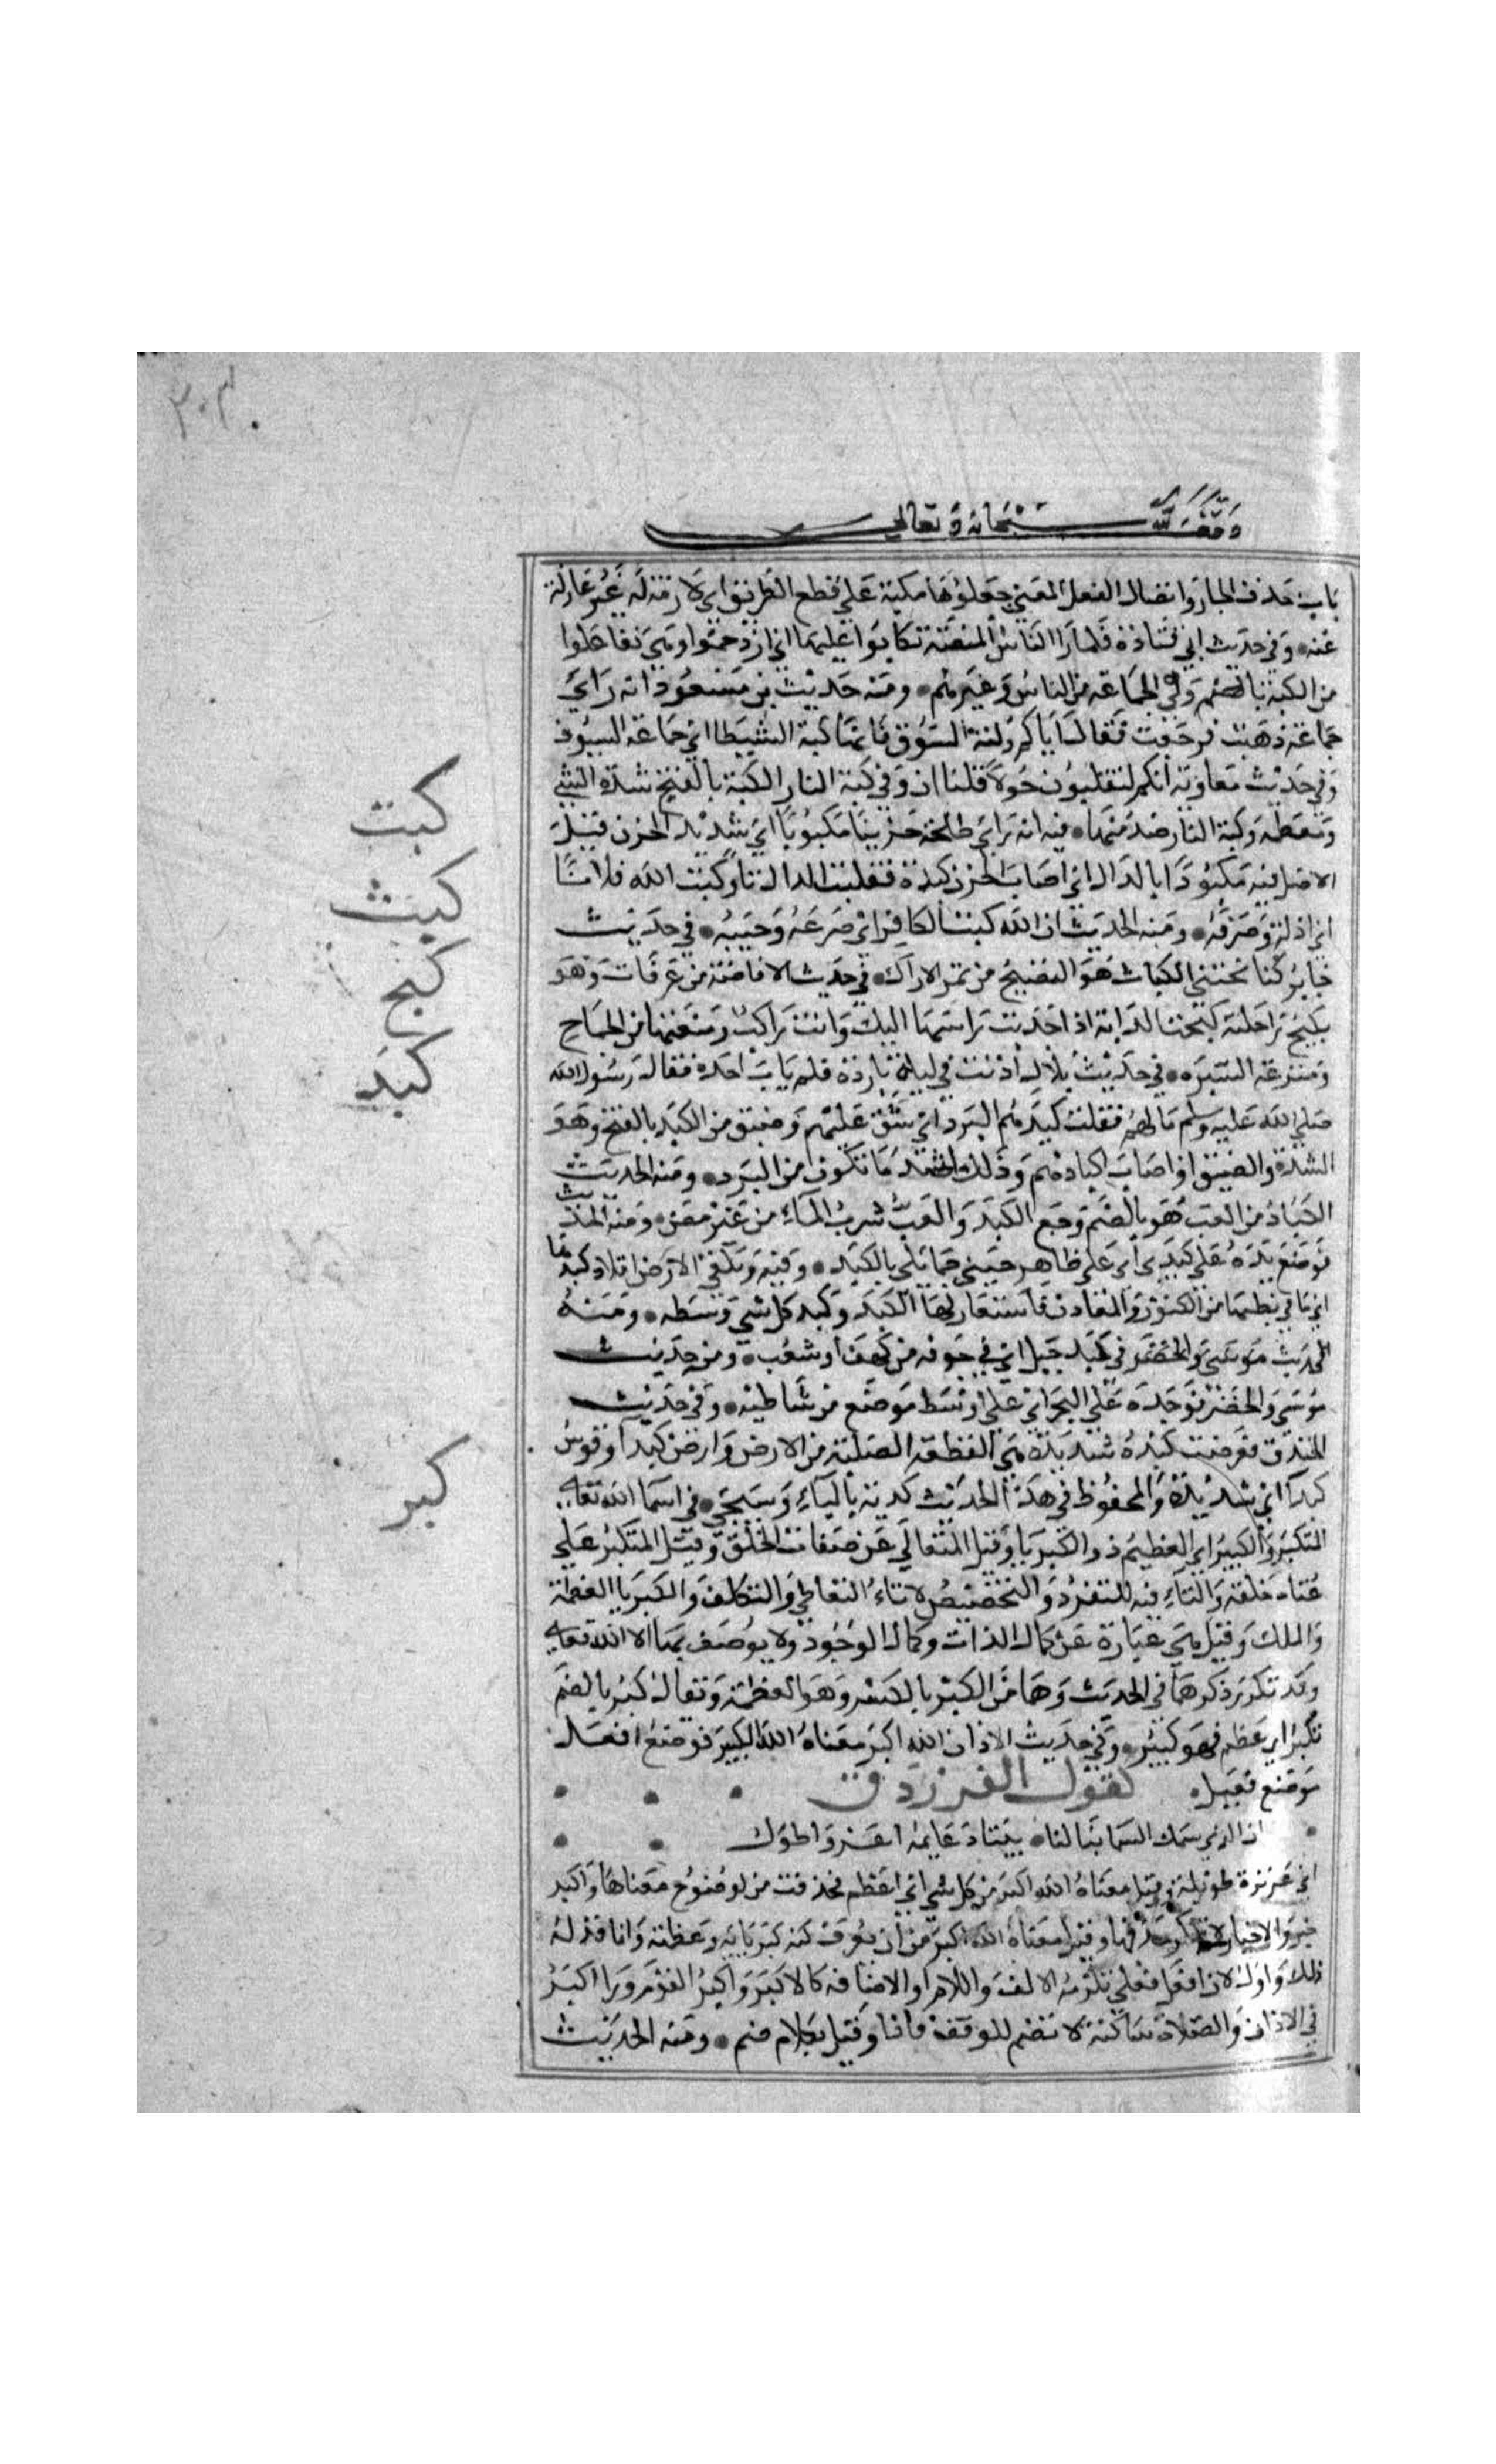 ٣٠٣
وقف لله سبحانه وتعالى
باب حذف الجار وايصال الفعل المعنى جعلوها مكبة على قطع الطريق اى لازمة له غير عادلة
عنه وفى حديث ابى قتادة فلما راا الناس الميضئة تكابوا عليها اى ازدحموا وهى تفاعلوا
من الكبة بالضم وهى الجماعة من الناس وغيرهم ومنه حديث بن مسعود انه راى
جماعة ذهبت فرجعت فقال اياكم وكبة السوق فانها كبة الشيطان اى جماعة السوق
وفى حديث معاوية انكم لتقلبون حولا قلبا ان وقى كبة النار الكبة بالفتح شدة الشى
ومعظمه وكبة النار صدمتها فيه انه راى طلحة حزينا مكبوتا اى شديد الحزن قيل
الاصل فيه مكبودا بالدال اى اصاب الحزن كبده فقلبت الدال تا وكبت الله فلانا
اى اذله وصرفه ومنه الحديث ان الله كبت الكافر اى صرعه وخيبه فى حديث
جابر كنا نجتنى الكباث هو النضيج من ثمر الاراك فى حديث الافاضة من عرفات وهو
يكبح راحلته كبحت الدابة اذا جذبت راسها اليك وانت راكب ومنعتها من الجماح
وسرعة السير فى حديث بلال اذنت فى ليلة باردة فلم يات احد فقال رسول الله
صلى الله عليه وسلم ما لهم فقلت كبدهم البرد اى شق عليهم وضيق من الكبد بالفتح وهو
الشدة والضيق او اصاب اكبادهم وذلك اشد ما تكون من البرد ومنه الحديث
الكباد من العب هو بالضم وجع الكبد والعب شرب الماء من غير مص ومنه الحديث
فوضع يده على كبدى اى على ظاهر جنبى مما يلى الكبد وفيه وتلقى الارض افلاذ كبدها
اى ما فى بطنها من الكنوز والمعادن فاستعار لها الكبد وكبد كل شى وسطه ومنه
الحديث موسى والخضر فى كبد جبل اى فى جوفه من كهف او شعب ومن حديث
موسى والخضر فوجده على البحر اى على اوسط موضع من شاطيه وفى حديث
الخندق فعرضت كبدة شديدة هى القطعة الصلبة من الارض وارض كبدا وقوس
كبدا اى شديدة والمحفوظ فى هذا الحديث كدية بالياء وسيجى فى اسما الله تعالى
المتكبر والكبير اى العظيم ذو الكبريا وقيل المتعالى عن صفات الخلق وقيل المتكبر على
عتاه خلقه والتاء فيه للتفرد والتخصيص لا تاء التعاطى والتكلف والكبريا العظمة
والملك وقيل هى عبارة عن كمال الذات وكمال الوجود ولا يوصف بها الا الله تعالى
وقد تكرر ذكرهما فى الحديث وهما من الكبر بالكسر وهو العظمة ويقال كبر بالضم
يكبر اى عظم فهو كبير وفى حديث الاذان الله اكبر معناه الله الكبير فوضع افعل
موضع فعيل كقول الفرزدق
ان الذى سمك السما بنا لنا بيتا دعايمه اعز واطول
اى عزيزة طويلة وقيل معناه الله اكبر من كل شى اى اعظم فحذفت من لوضوح معناها واكبر
خبر والاخبار لا ينكر حذفها وقيل معناه الله اكبر من ان يعرف كنه كبريائه وعظمته وانما قدر له
ذلك واول لان افعل فعلى يلزمه الالف واللام او الاضافة كالاكبر واكبر القوم ورا اكبر
فى الاذان والصلاة ساكنة لا تضم للوقف فاذا وقيل بكلام ضم ومنه الحديث
كبت
كبث
كبح
كبد
كبر